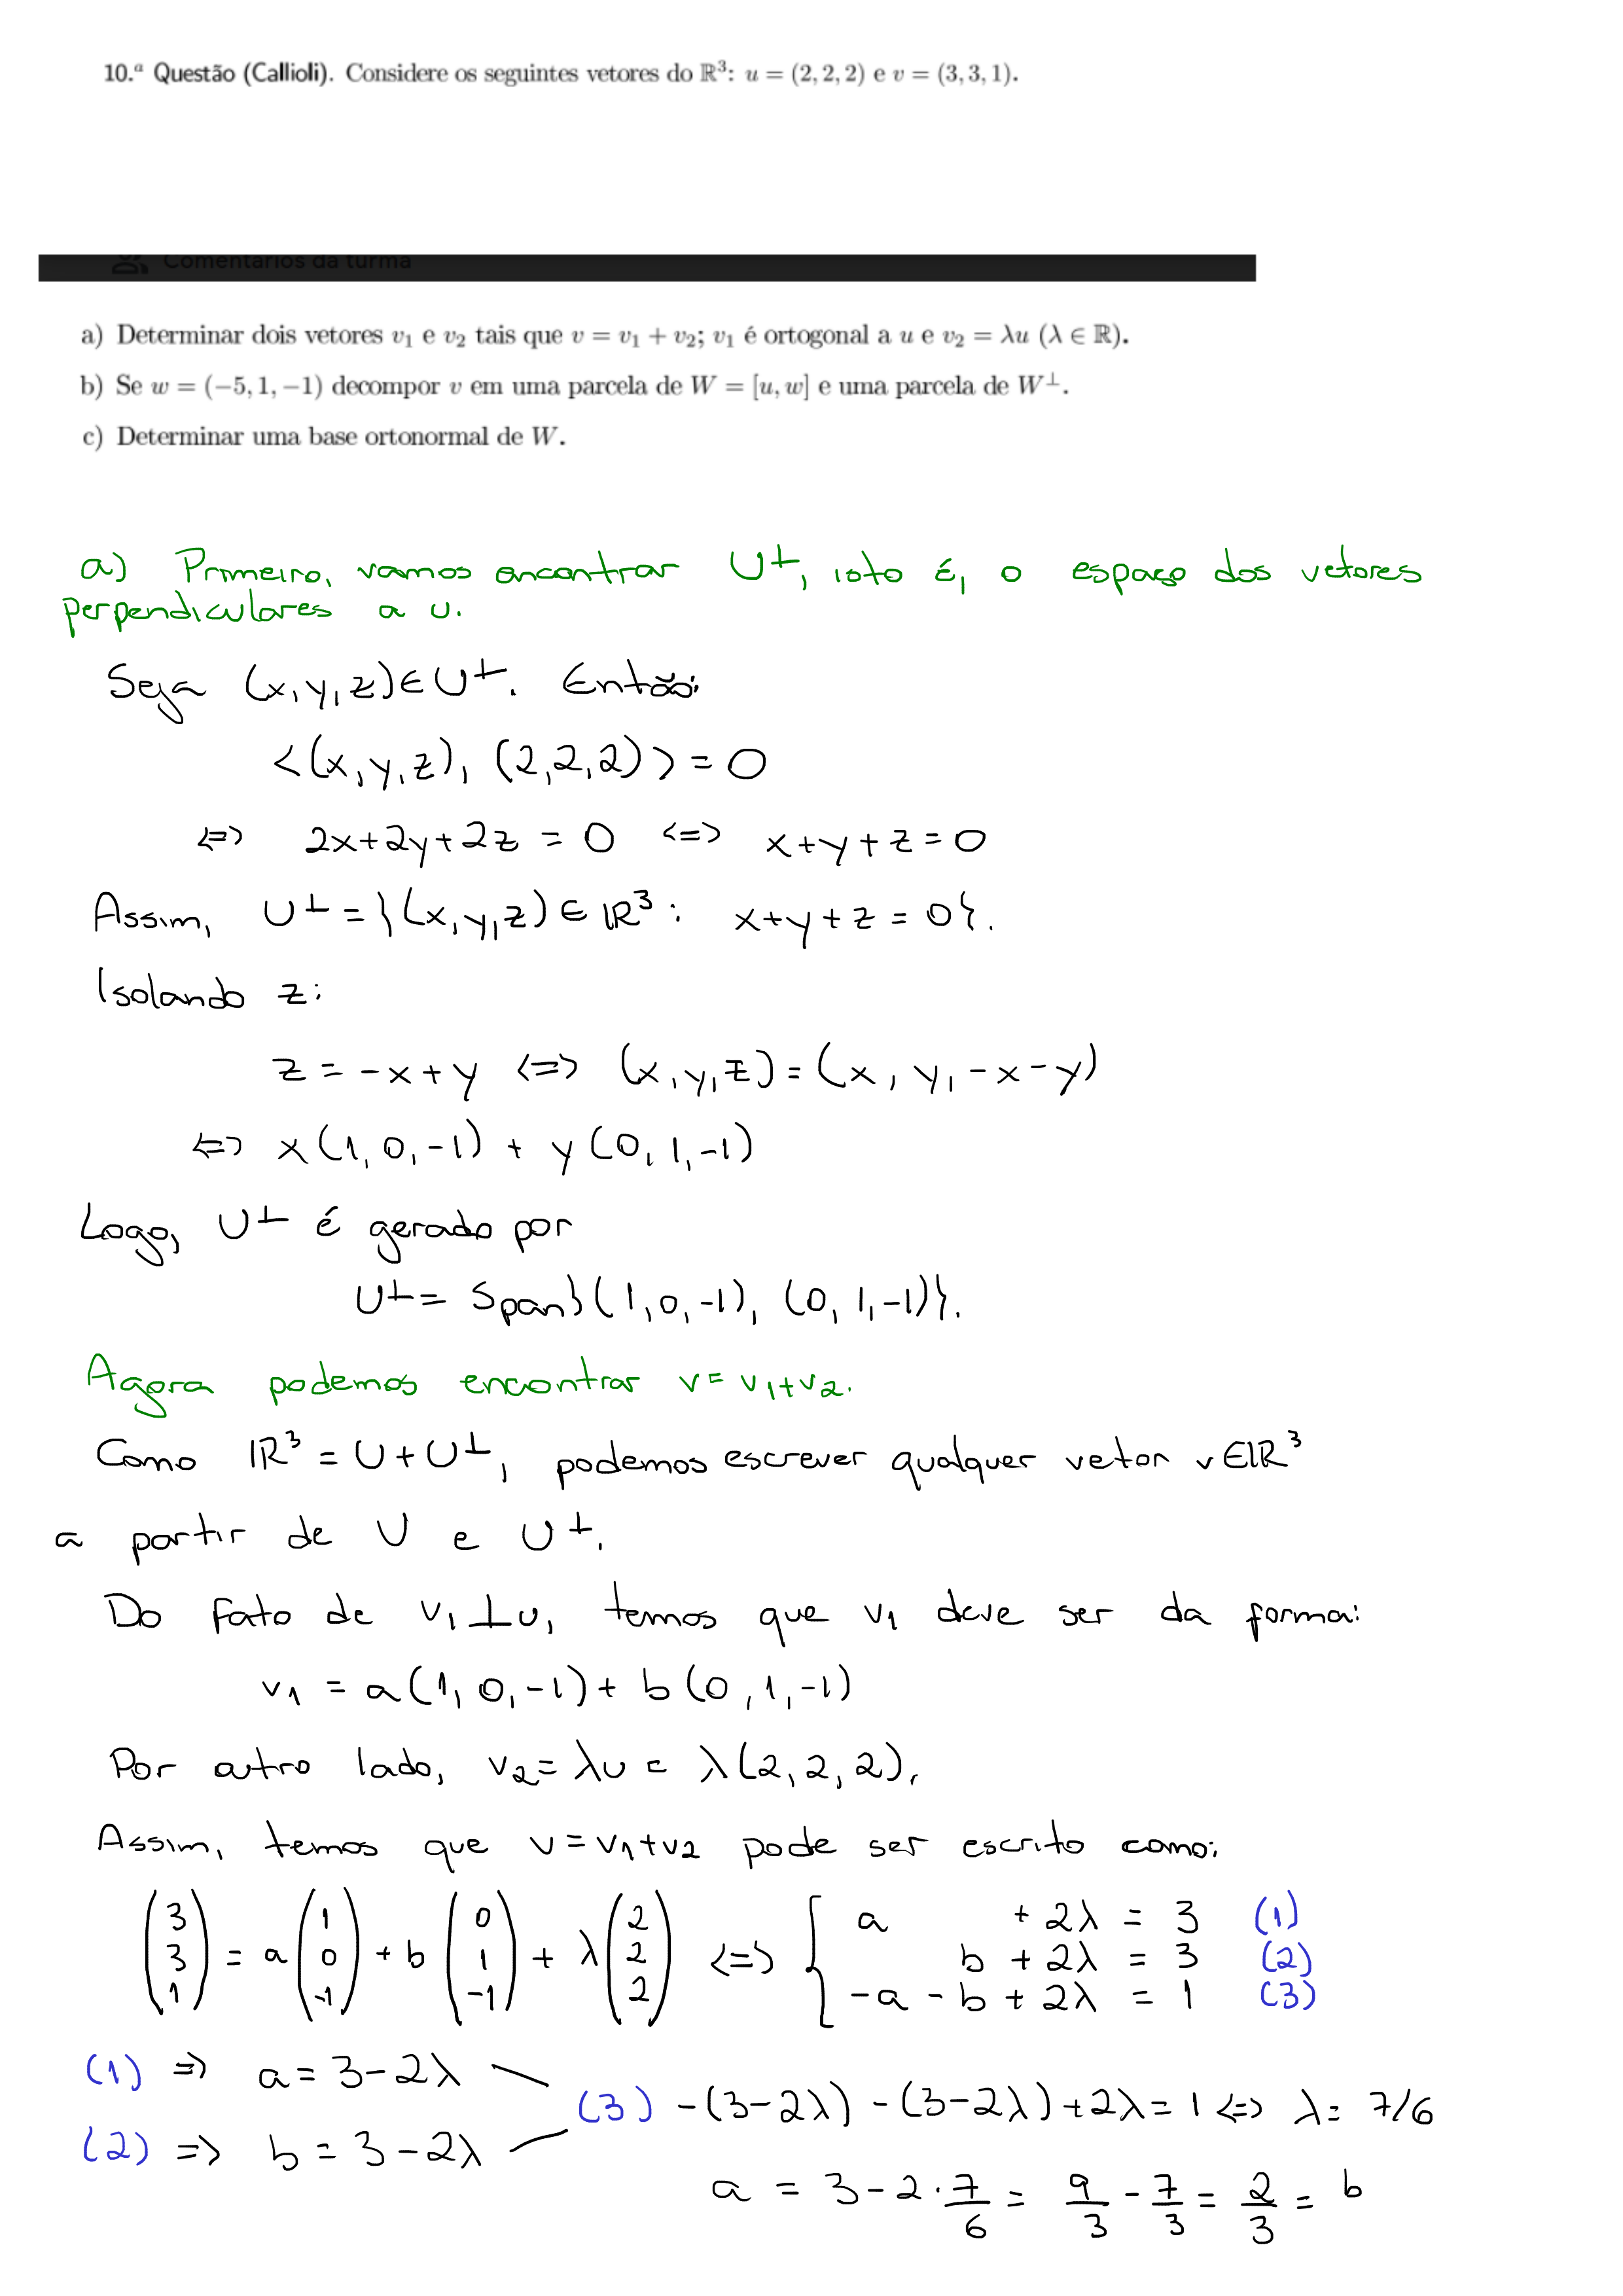 10.ª Questão (Callioli). Considere os seguintes vetores do ℝ³: u = (2, 2, 2) e v = (3, 3, 1).
Comentários da turma
a) Determinar dois vetores v₁ e v₂ tais que v = v₁ + v₂; v₁ é ortogonal a u e v₂ = λu (λ ∈ ℝ).
b) Se w = (−5, 1, −1) decompor v em uma parcela de W = [u, w] e uma parcela de W⊥.
c) Determinar uma base ortonormal de W.
a) Primeiro, vamos encontrar U⊥, isto é, o espaço dos vetores
perpendiculares a u.
Seja (x,y,z)∈U⊥. Então:
<(x,y,z), (2,2,2)> = 0
<=> 2x+2y+2z = 0 <=> x+y+z=0
Assim, U⊥ = {(x,y,z) ∈ ℝ³ : x+y+z = 0}.
Isolando z:
z = -x+y <=> (x,y,z) = (x, y, -x-y)
<=> x(1,0,-1) + y(0,1,-1)
Logo, U⊥ é gerado por
U⊥ = Span{(1,0,-1), (0,1,-1)}.
Agora podemos encontrar v = v₁+v₂.
Como ℝ³ = U+U⊥, podemos escrever qualquer vetor v∈ℝ³
a partir de U e U⊥.
Do fato de v₁⊥u, temos que v₁ deve ser da forma:
v₁ = a(1,0,-1) + b(0,1,-1)
Por outro lado, v₂ = λu = λ(2,2,2).
Assim, temos que v = v₁+v₂ pode ser escrito como:
(3 3 1) = a(1 0 -1) + b(0 1 -1) + λ(2 2 2) <=> { a + 2λ = 3 (1)
b + 2λ = 3 (2)
-a - b + 2λ = 1 (3)
(1) => a = 3-2λ
(3) -(3-2λ) - (3-2λ) + 2λ = 1 <=> λ = 7/6
(2) => b = 3-2λ
a = 3 - 2 · 7/6 = 9/3 - 7/3 = 2/3 = b